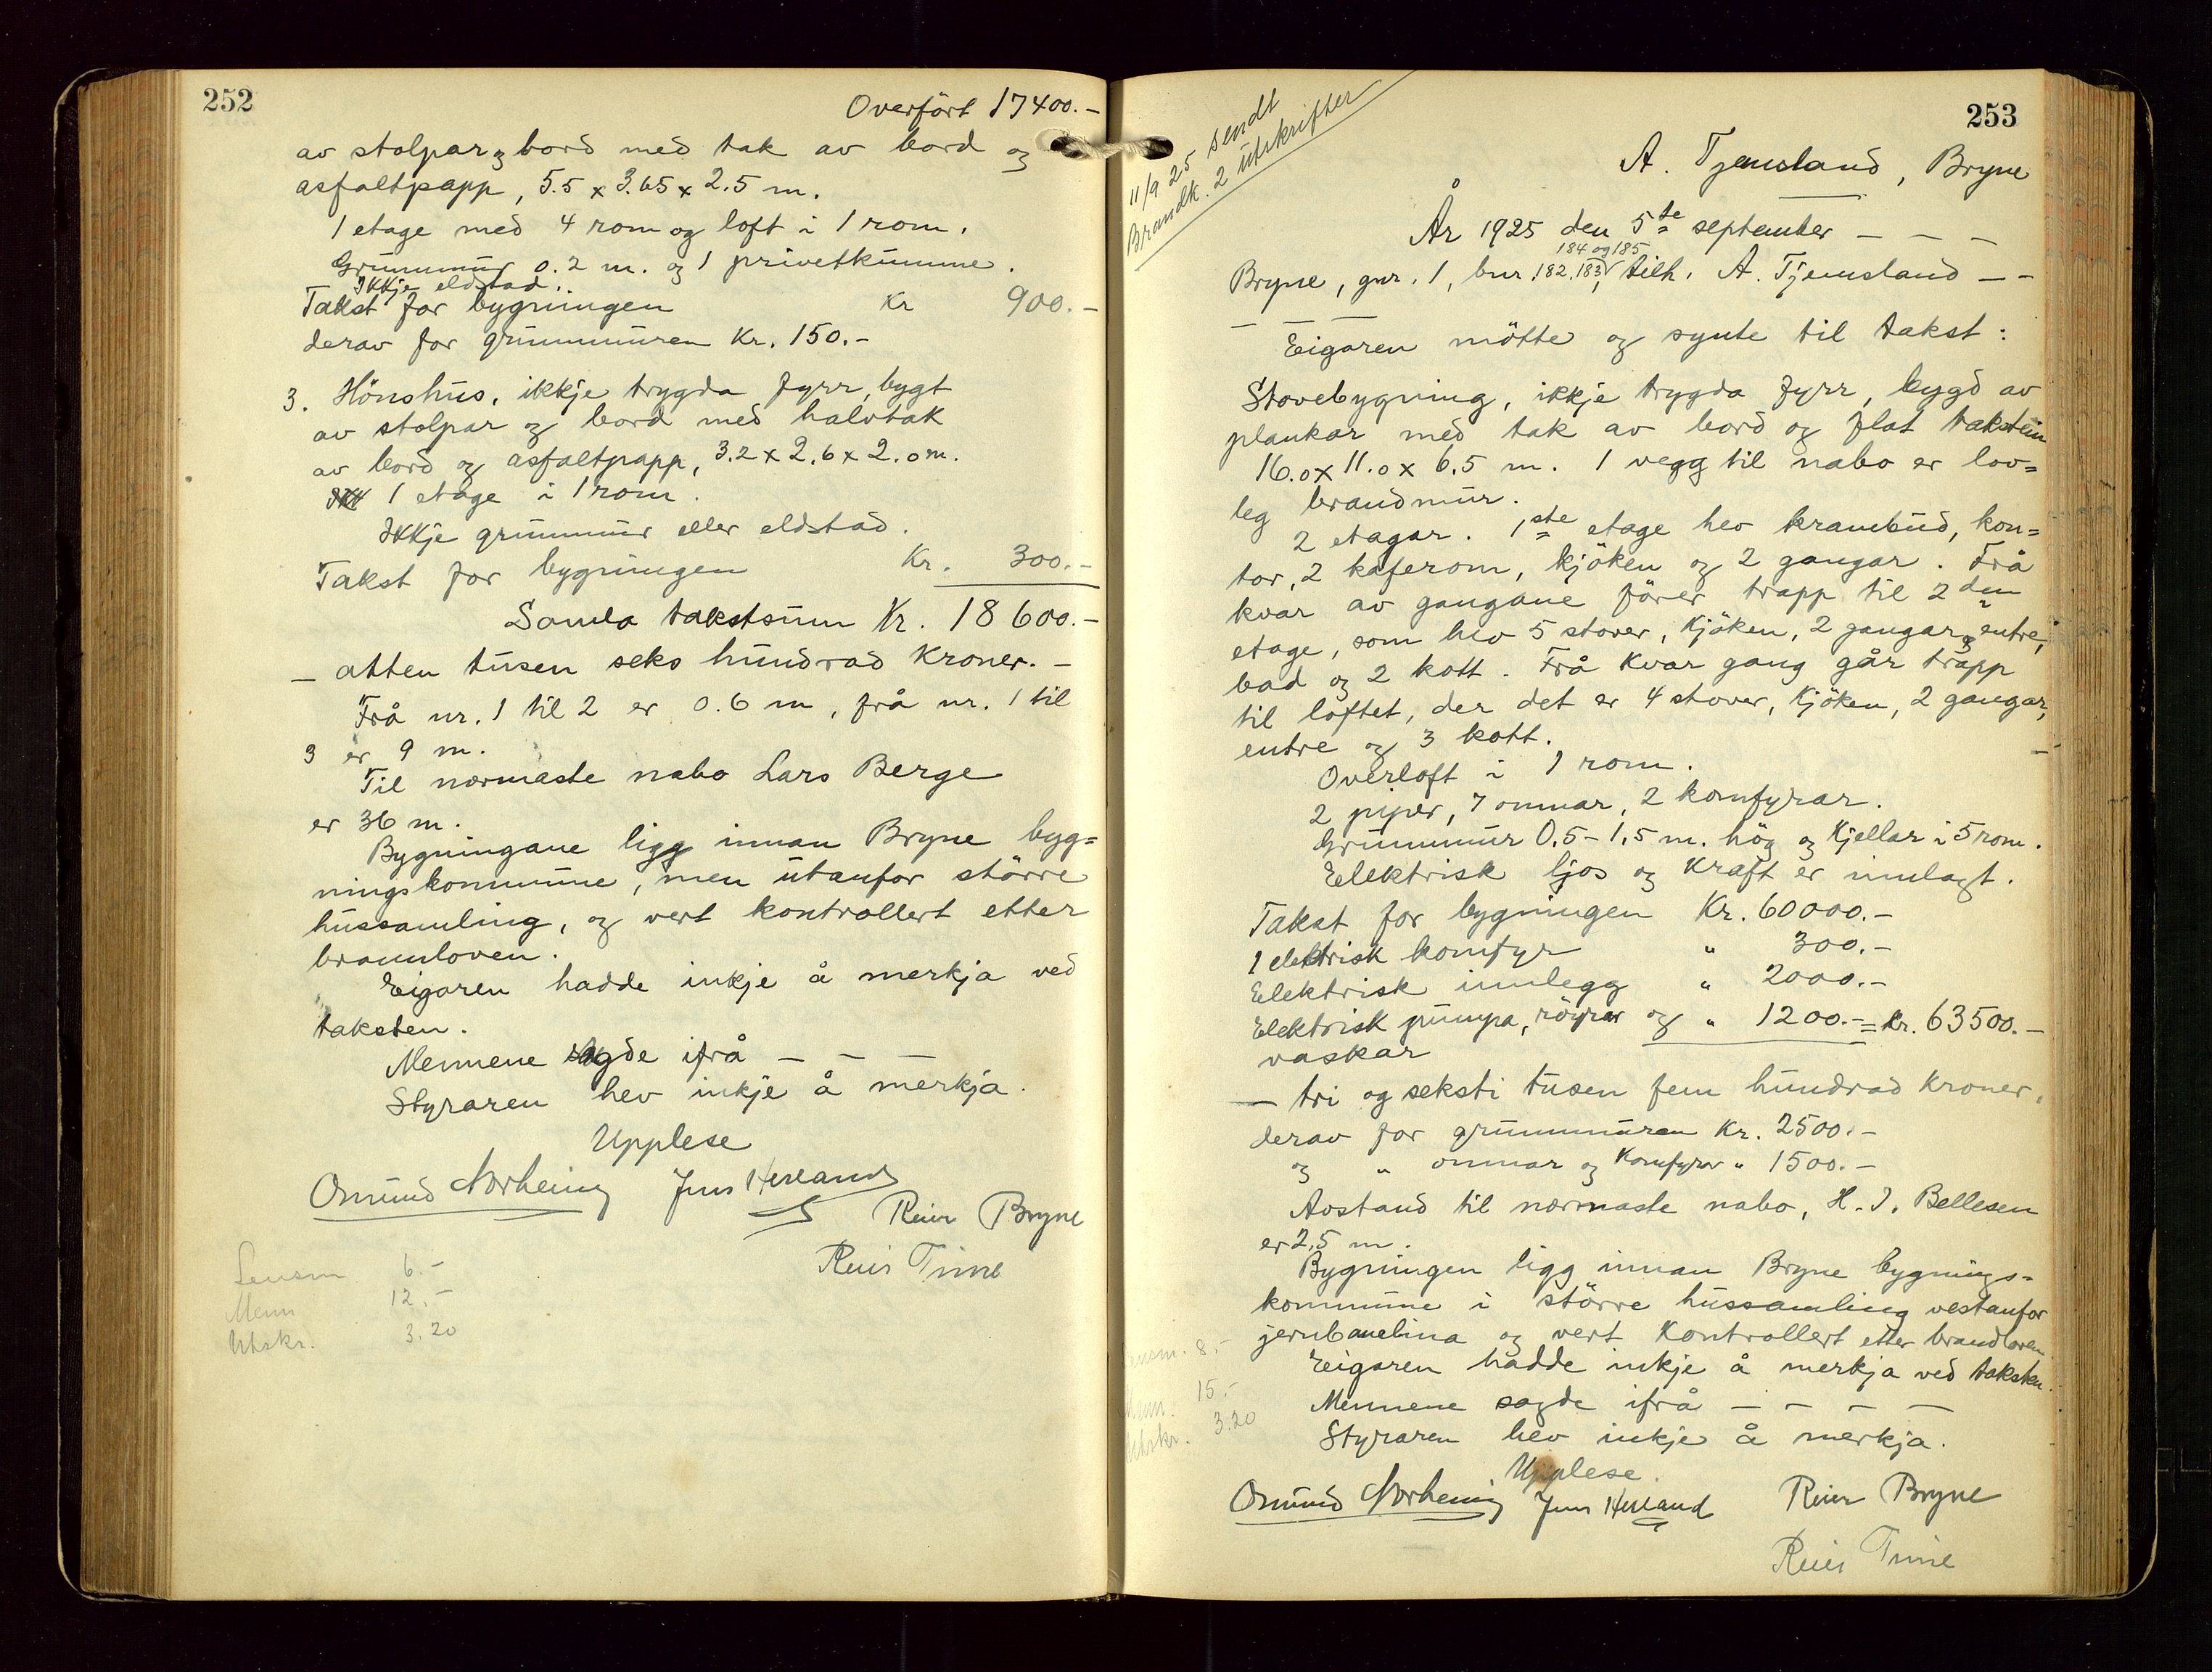 252
Overfört 17400.-
av stolpar og bord med tak av bord og
asfaltpapp, 5.5 x 3.65 x 2.5 m.
1 etage med 4 rom og loft i 1 rom.
Grunnmur 0.2 m. og 1 privetkumme.
Ikkje eldstad.
Takst for bygningen Kr 900.-
derav for grunnmuren Kr. 150.-
3. Hönshus, ikkje trygda fyrr, bygt
av stolpar og bord med halvtak
av bord og asfaltpapp, 3.2 x 2.6 x 2.0 m.
1 etage i 1 rom.
Ikkje grunnmur eller eldstad.
Takst for bygningen Kr. 300.-
Samla takstsum Kr. 18600.-
- atten tusen seks hundrad kroner. -
Frå nr. 1 til 2 er 0.6 m, frå nr. 1 til
3 er 9 m.
Til nærmaste nabo Lars Berge
er 36 m.
Bygningane ligg innan Bryne byg=
ningskommune, men utanfor större
hussamling, og vert kontrollert etter
brannloven.
Eigaren hadde inkje å merkja ved
taksten.
Mennene sagde ifrå - - -
Styraren hev inkje å merkja.
Upplese
Omund Norheim Jens Herland
Reier Bryne
Reier Time
Lensm 6.-
Menn 12.-
Utskr. 3.20
253
11/9 25 sendt
Brandk. 2 utskrifter
A. Tjemsland, Bryne
År 1925 den 5te september - - -
184 og 185
Bryne, gnr. 1, bnr 182, 183, tilh. A. Tjemsland - -
- - -
Eigaren mötte og synte til takst:
Stovebygning, ikkje trygda fyrr, bygd av
plankar med tak av bord og flat takstein
16.0 x 11.0 x 6.5 m. 1 vegg til nabo er lov=
leg brandmur.
2 etagar. 1ste etage hev krambud, kon=
tor, 2 kaferom, kjöken og 2 gangar. Frå
kvar av gangane förer trapp til 2den
etage, som hev 5 stover, kjöken, 2 gangar og entre,
bad og 2 kott. Frå kvar gang går trapp
til loftet, der det er 4 stover, kjöken, 2 gangar,
entre og 3 kott. -
Overloft i 1 rom.
2 piper, 7 omnar, 2 komfyrar.
Grunnmur 0,5 - 1,5 m. hög og kjellar i 5 rom.
Elektrisk ljos og kraft er innlagt.
Takst for bygningen Kr. 60000.-
1 elektrisk komfyr " 300.-
Elektrisk innlegg " 2000.-
Elektrisk pumpa, röyrar og " 1200.- = kr. 63500.-
vaskar
- tri og seksti tusen fem hundrad kroner.
derav for grunnmuren Kr. 2500.-
og " omnar og komfyrar " 1500.-
Avstand til nærmaste nabo, H. J. Bellesen
er 2,5 m.
Bygningen ligg innan Bryne bygnings=
kommune i större hussamling vestanfor
jernbanelina og vert kontrollert etter brandloven.
Eigaren hadde inkje å merkja ved taksten.
Mennene sagde ifrå - - - -
Styraren hev inkje å merkja.
Upplese.
Omund Norheim Jens Herland Reier Bryne
Reier Time
Lensm. 8.-
Menn. 15.-
Utskr. 3.20